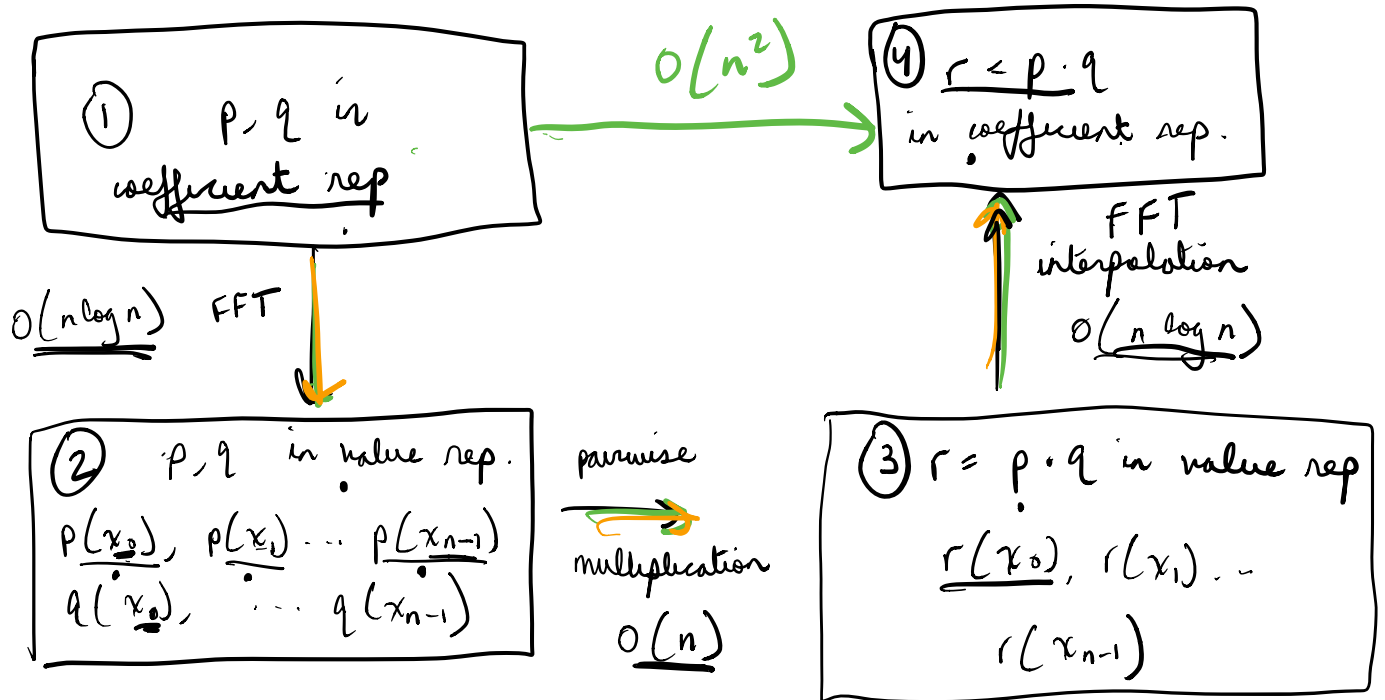 ① p, q in
coefficient rep
O(n²)
④ r < p · q
in coefficient rep.
O(n log n) FFT
FFT
interpolation
O(n log n)
② p, q in value rep.
p(x₀), p(x₁) ... p(xₙ₋₁)
q(x₀), ... q(xₙ₋₁)
pairwise
multiplication
O(n)
③ r = p · q in value rep
r(x₀), r(x₁) ...
r(xₙ₋₁)